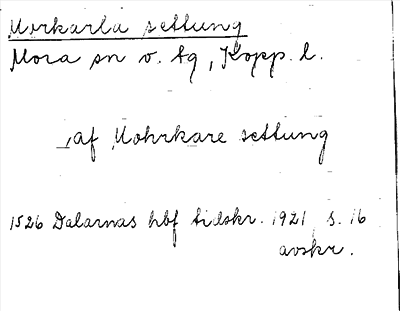 Morkarla settung
Mora sn v. tg, Kopp. l.
, af Mohrkare settung
1526 Dalarnas hbf tidskr. 1921, s. 16
avskr.